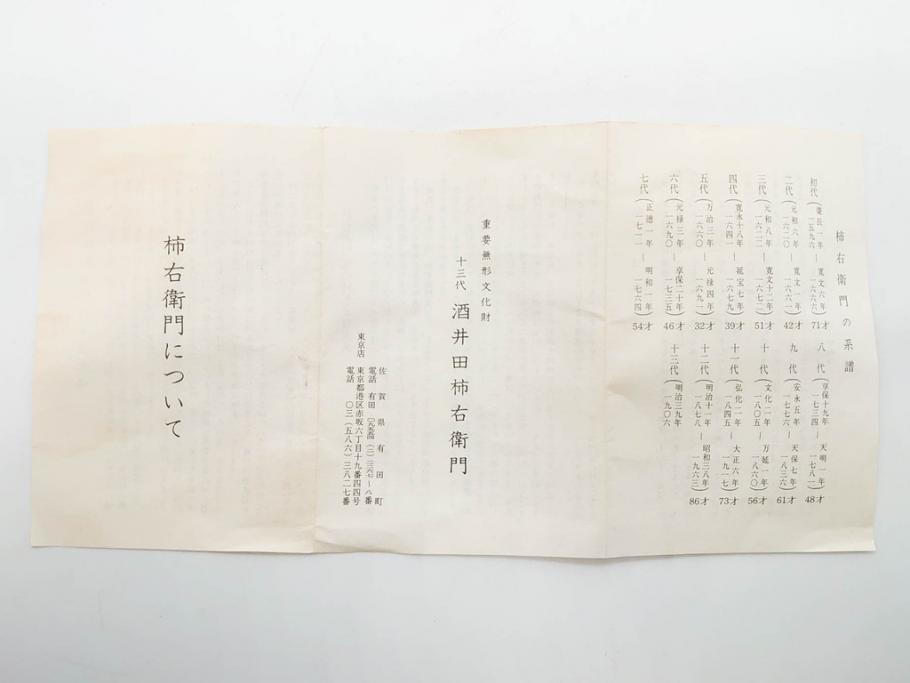 柿右衛門の系譜
初代(慶長一年 一五九六 ― 寛文六年 一六六六)71才
二代(元和六年 一六二〇 ― 寛文一年 一六六一)42才
三代(元和八年 一六二二 ― 寛文十二年 一六七二)51才
四代(寛永十八年 一六四一 ― 延宝七年 一六七九)39才
五代(万治三年 一六六〇 ― 元禄四年 一六九一)32才
六代(元禄三年 一六九〇 ― 享保二十年 一七三五)46才
七代(正徳一年 一七一一 ― 明和一年 一七六四)54才
八代(享保十九年 一七三四 ― 天明一年 一七八一)48才
九代(安永五年 一七七六 ― 天保七年 一八三六)61才
十代(文化二年 一八〇五 ― 万延一年 一八六〇)56才
十一代(弘化二年 一八四五 ― 大正六年 一九一七)73才
十二代(明治十一年 一八七八 ― 昭和三八年 一九六三)86才
十三代(明治三九年 一九〇六
重要無形文化財
十三代 酒井田柿右衛門
佐賀県有田町
電話 有田
東京店 東京都港区赤坂六丁目十九番四四号
電話 〇三(五八六)三八二七番
柿右衛門について